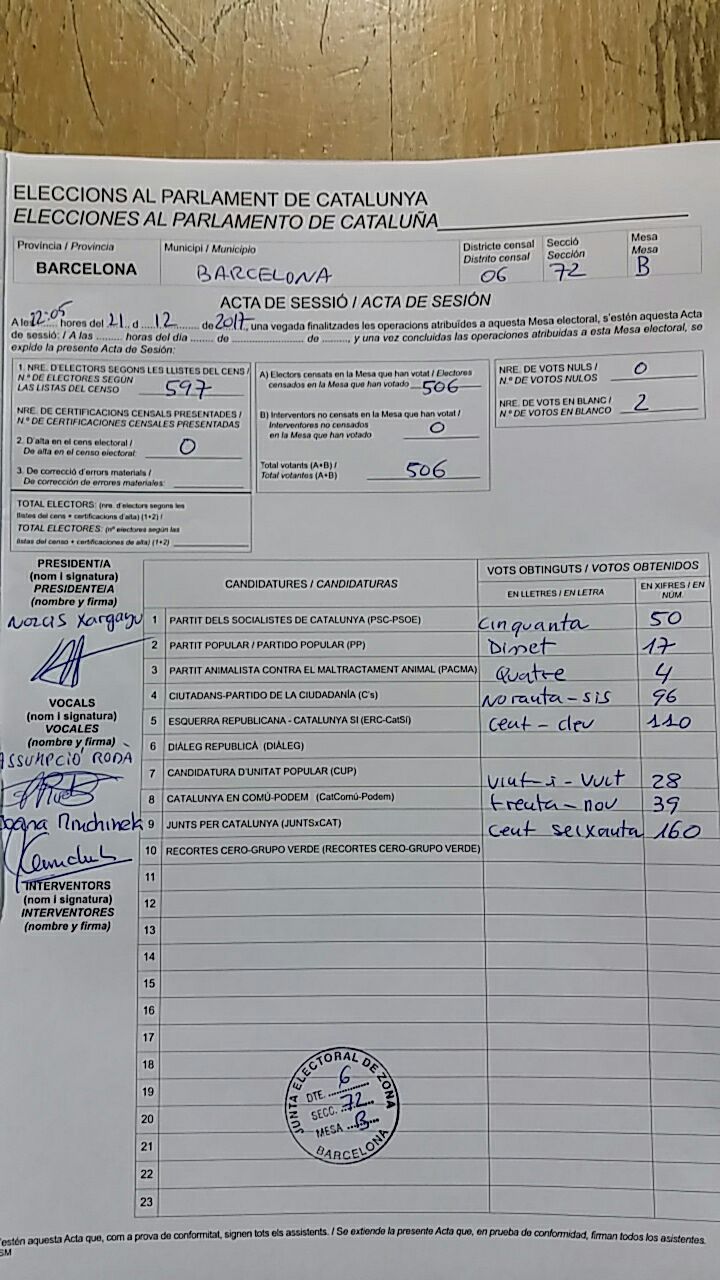 ELECCIONS AL PARLAMENT DE CATALUNYA
ELECCIONES AL PARLAMENTO DE CATALUÑA
Província / Provincia
BARCELONA
Municipi / Municipio
BARCELONA
Districte censal
Distrito censal
06
Secció
Sección
72
Mesa
Mesa
B
ACTA DE SESSIÓ / ACTA DE SESIÓN
A les 22:05 hores del 21 d 12 de 2017, una vegada finalitzades les operacions atribuïdes a aquesta Mesa electoral, s'estén aquesta Acta
de sessió: / A las ........ horas del día ...... de .................. de ........, y una vez concluidas las operaciones atribuidas a esta Mesa electoral, se
expide la presente Acta de Sesión:
1. NRE. D'ELECTORS SEGONS LES LLISTES DEL CENS /
N.º DE ELECTORES SEGÚN
LAS LISTAS DEL CENSO 597
NRE. DE CERTIFICACIONS CENSALS PRESENTADES /
N.º DE CERTIFICACIONES CENSALES PRESENTADAS
2. D'alta en el cens electoral /
De alta en el censo electoral: 0
3. De correcció d'errors materials /
De corrección de errores materiales:
TOTAL ELECTORS: (nre. d'electors segons les
llistes del cens + certificacions d'alta) (1+2) /
TOTAL ELECTORES: (nº electores según las
listas del censo + certificaciones de alta) (1+2)
A) Electors censats en la Mesa que han votat / Electores
censados en la Mesa que han votado 506
B) Interventors no censats en la Mesa que han votat /
Interventores no censados
en la Mesa que han votado 0
Total votants (A+B) /
Total votantes (A+B) 506
NRE. DE VOTS NULS /
N.º DE VOTOS NULOS 0
NRE. DE VOTS EN BLANC /
N.º DE VOTOS EN BLANCO 2
PRESIDENT/A
(nom i signatura)
PRESIDENTE/A
(nombre y firma)
Narcis Xargayu
VOCALS
(nom i signatura)
VOCALES
(nombre y firma)
ASSUMPCIÓ RODÀ
INTERVENTORS
(nom i signatura)
INTERVENTORES
(nombre y firma)
CANDIDATURES / CANDIDATURAS
VOTS OBTINGUTS / VOTOS OBTENIDOS
EN LLETRES / EN LETRA
EN XIFRES / EN
NÚM.
1 PARTIT DELS SOCIALISTES DE CATALUNYA (PSC-PSOE) Cinquanta 50
2 PARTIT POPULAR / PARTIDO POPULAR (PP) Disset 17
3 PARTIT ANIMALISTA CONTRA EL MALTRACTAMENT ANIMAL (PACMA) Quatre 4
4 CIUTADANS-PARTIDO DE LA CIUDADANÍA (C's) Noranta-sis 96
5 ESQUERRA REPUBLICANA - CATALUNYA SI (ERC-CatSí) Cent-deu 110
6 DIÀLEG REPUBLICÀ (DIÀLEG)
7 CANDIDATURA D'UNITAT POPULAR (CUP) Vint-i-Vuit 28
8 CATALUNYA EN COMÚ-PODEM (CatComú-Podem) trenta-nou 39
9 JUNTS PER CATALUNYA (JUNTSxCAT) Cent seixanta 160
10 RECORTES CERO-GRUPO VERDE (RECORTES CERO-GRUPO VERDE)
11
12
13
14
15
16
17
18
19
20
21
22
23
JUNTA ELECTORAL DE ZONA
DTE. 6
SECC. 72
MESA B
BARCELONA
s'estén aquesta Acta que, com a prova de conformitat, signen tots els assistents. / Se extiende la presente Acta que, en prueba de conformidad, firman todos los asistentes.
SM